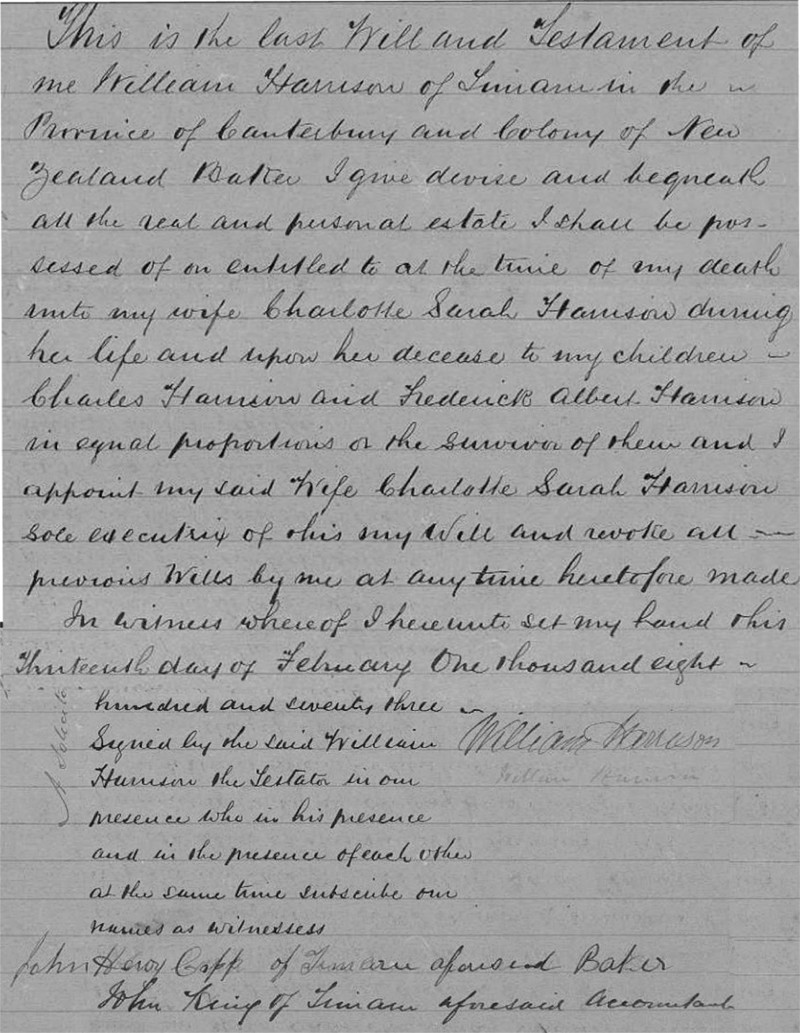 This is the last Will and Testament of
me William Harrison of Timaru in the
Province of Canterbury and Colony of New
Zealand Baker I give devise and bequeath
all the real and personal estate I shall be pos-
sessed of or entitled to at the time of my death
unto my wife Charlotte Sarah Harrison during
her life and upon her decease to my children
Charles Harrison and Frederick Albert Harrison
in equal proportions or the survivor of them and I
appoint my said Wife Charlotte Sarah Harrison
sole executrix of this my Will and revoke all
previous Wills by me at any time heretofore made
In witness whereof I hereunto set my hand this
Thirteenth day of February One thousand eight
hundred and seventy three
Signed by the said William
William Harrison
Harrison the Testator in our
William Harrison
presence who in his presence
and in the presence of each other
at the same time subscribe our
names as witnessess
John Henry Capp of Timaru aforesaid Baker
John King of Timaru aforesaid Accountant